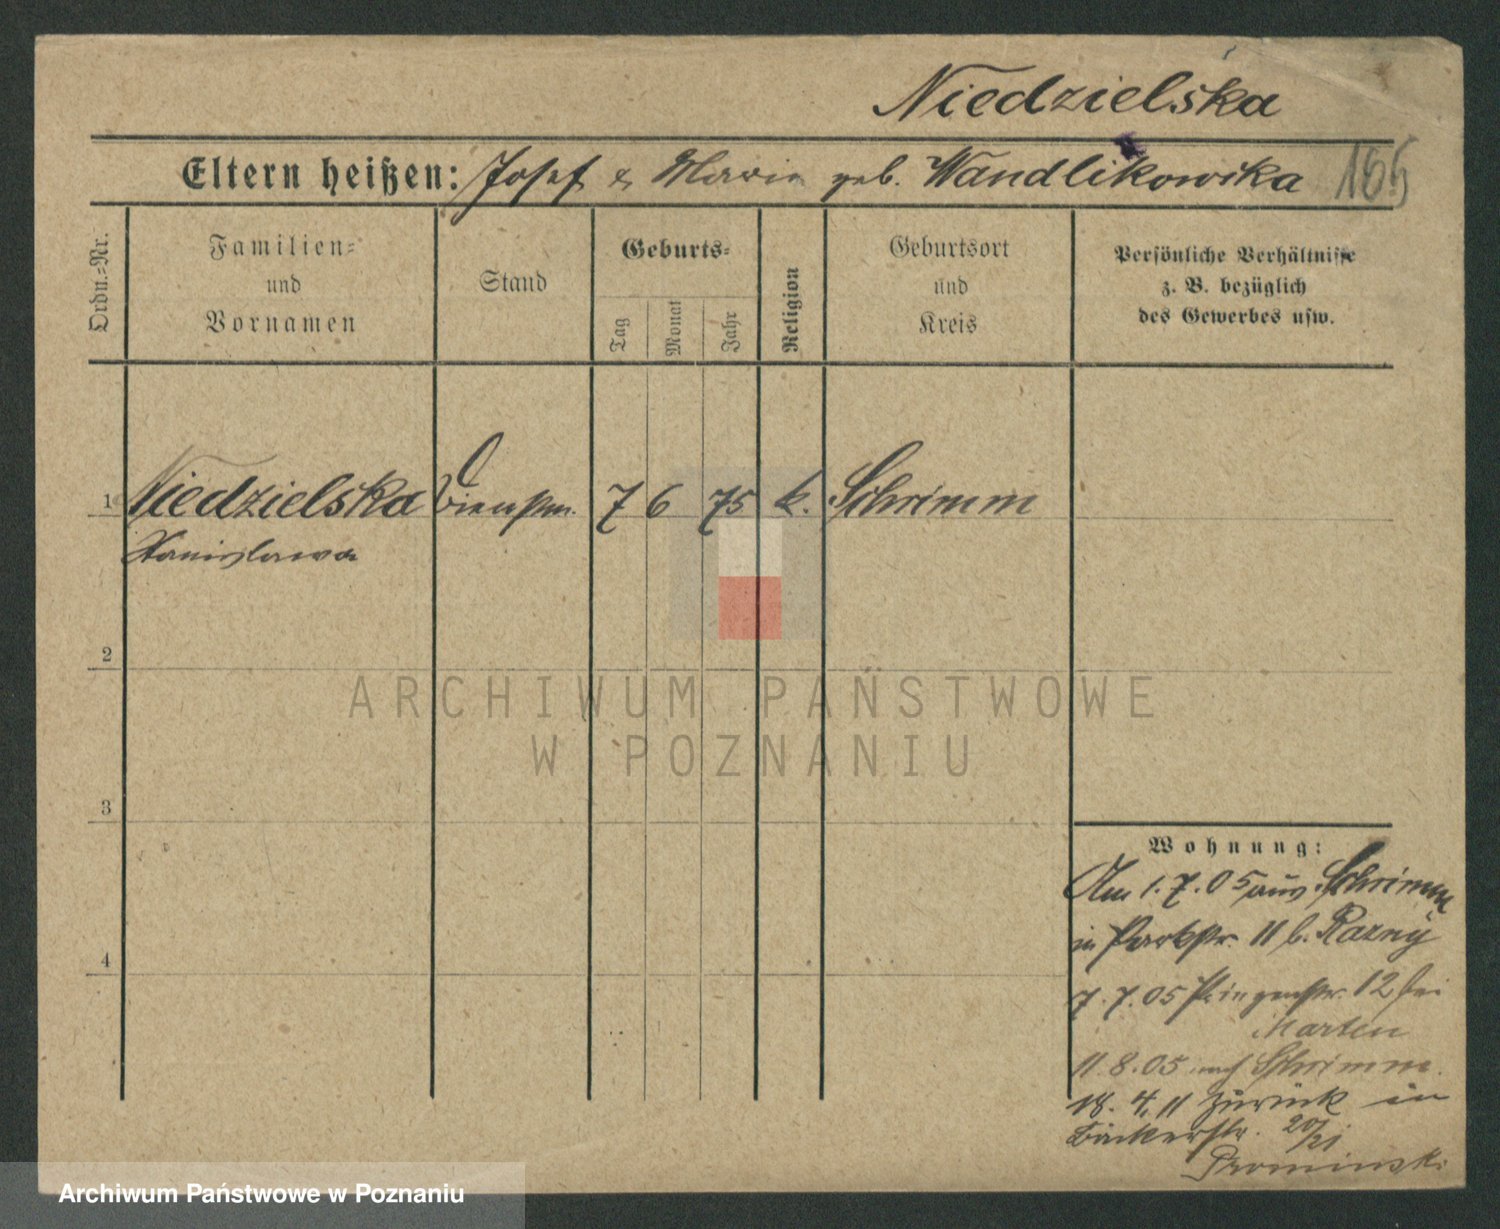 Niedzielska
Eltern heißen: Josef & Maria geb. Wandlikowska 165
Ordn.-Nr.
Familien-
und
Vornamen
Stand
Geburts-
Tag
Monat
Jahr
Religion
Geburtsort
und
Kreis
Persönliche Verhältnisse
z. B. bezüglich
des Gewerbes usw.
1 Niedzielska Dienstm. 7 6 75 k. Schrimm
Stanislawa
2
ARCHIWUM PAŃSTWOWE
W POZNANIU
3
Wohnung:
Am 1.7.05 aus Schrimm
in Parkstr. 11 b. Razny
4
7.7.05 Prinzenstr. 12 bei
Marten
11.8.05 nach Schrimm.
18.4.11 zurück in
Bäckerstr. 20/21
Prominski
Archiwum Państwowe w Poznaniu